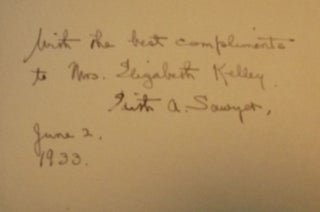 With the best compliments
to Mrs. Elizabeth Kelley.
A. Sawyer,
June 2.
1933.